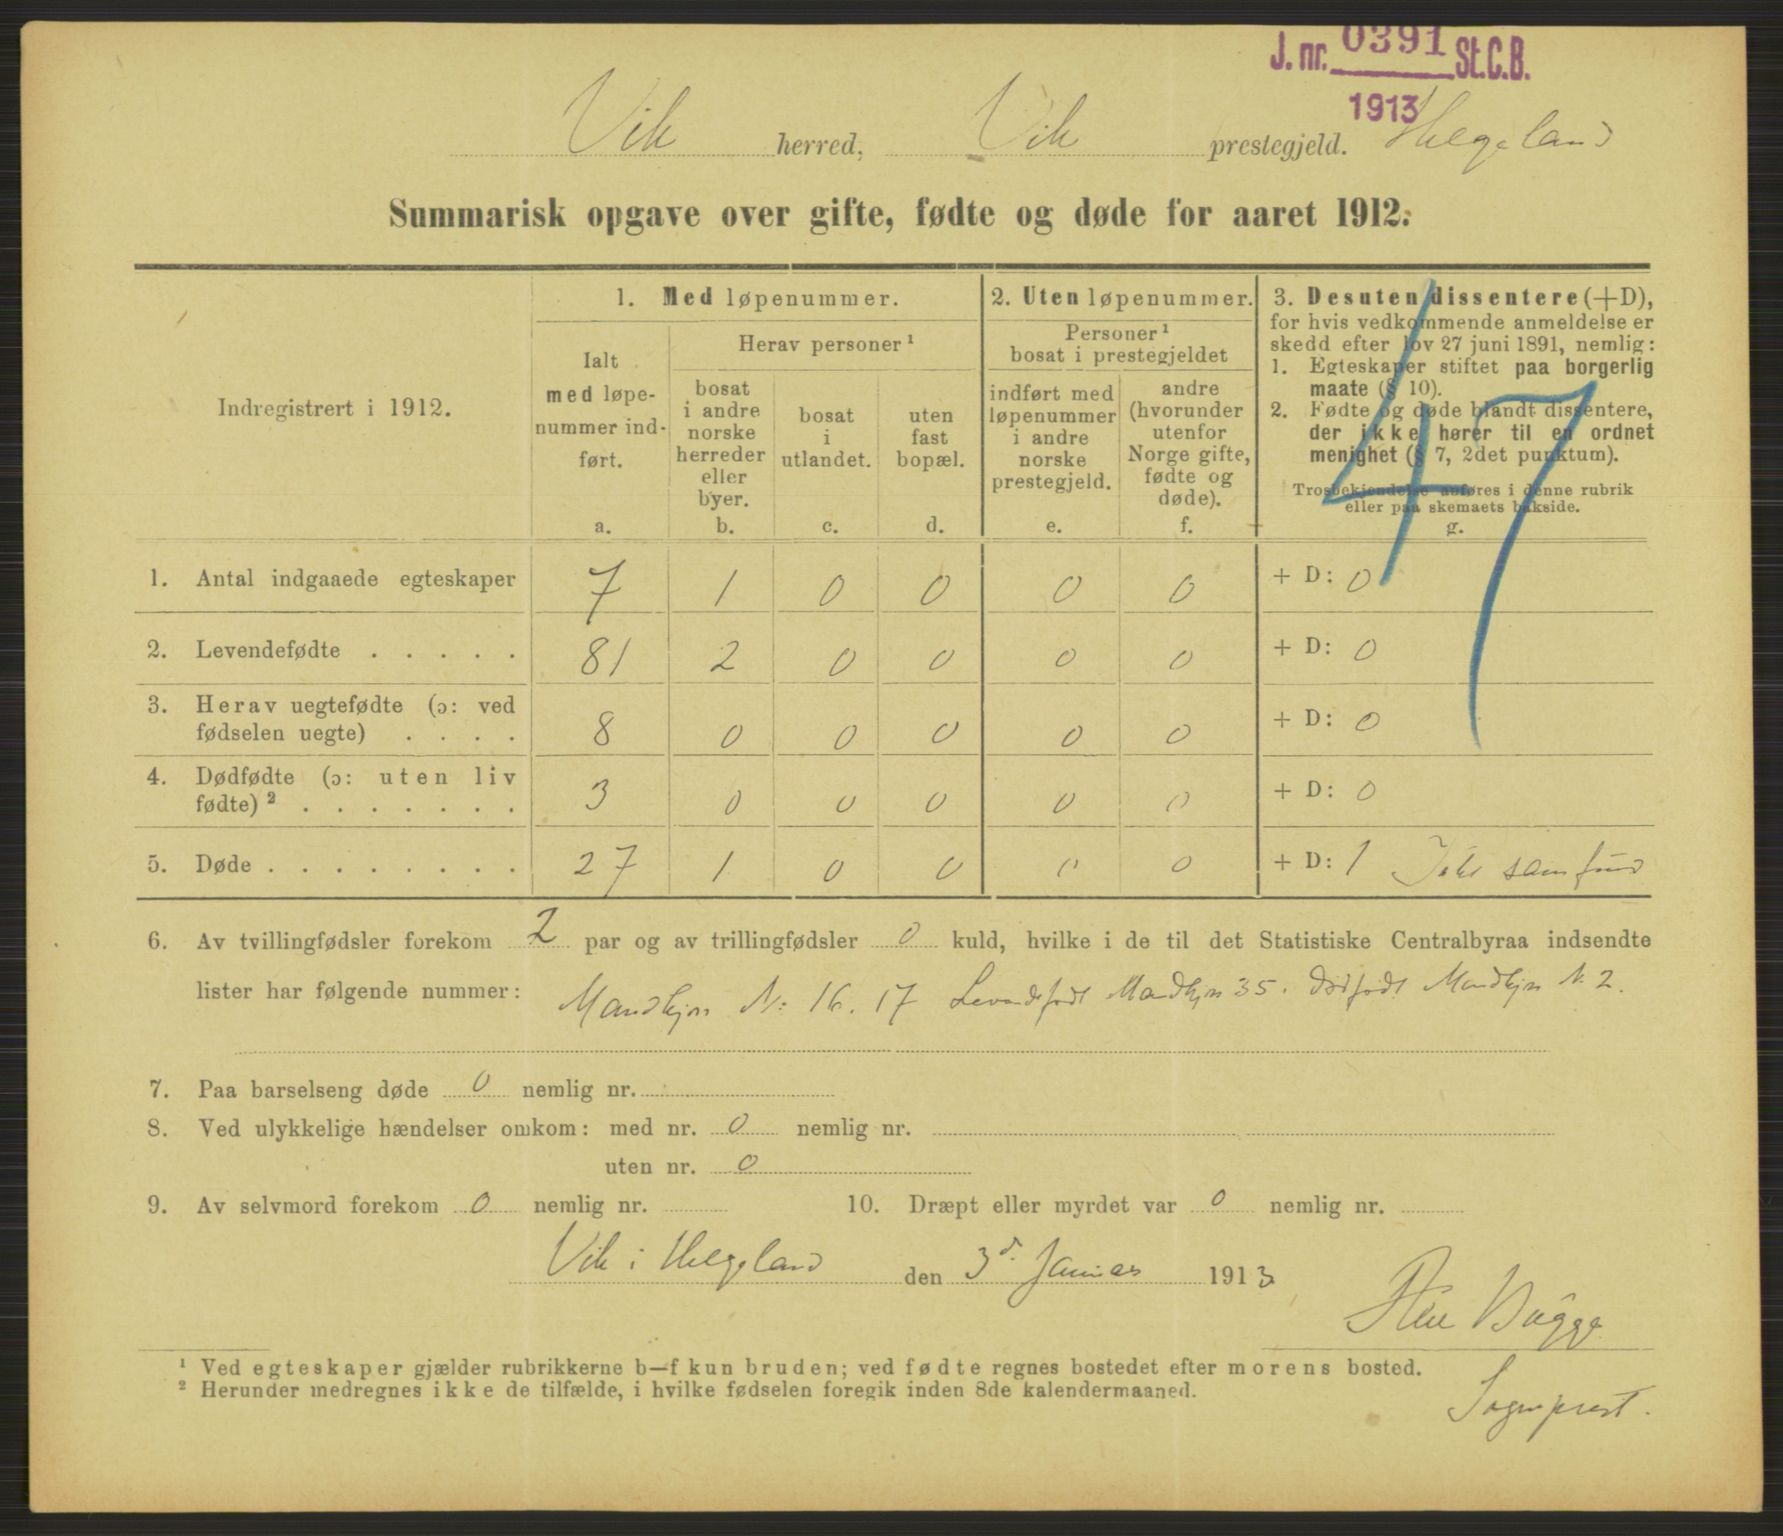 J. nr. 0391 St.C.B.
1913
Vik herred, Vik prestegjeld. Helgeland
Summarisk opgave over gifte, fødte og døde for aaret 1912.
Indregistrert i 1912.
1. Med løpenummer.
Ialt
med løpe-
nummer ind-
ført.
a.
Herav personer ¹
bosat
i andre
norske
herreder
eller
byer.
b.
bosat
i
utlandet.
c.
uten
fast
bopæl.
d.
2. Uten løpenummer.
Personer ¹
bosat i prestegjeldet
indført med
løpenummer
i andre
norske
prestegjeld.
e.
andre
(hvorunder
utenfor
Norge gifte,
fødte og
døde).
f.
3. Desuten dissentere (+D),
for hvis vedkommende anmeldelse er
skedd efter lov 27 juni 1891, nemlig:
1. Egteskaper stiftet paa borgerlig
maate (§ 10).
2. Fødte og døde blandt dissentere,
der ikke hører til en ordnet
menighet (§ 7, 2det punktum).
Trosbekjendelse anføres i denne rubrik
eller paa skemaets bakside.
g.
47
1. Antal indgaaede egteskaper 7 1 0 0 0 0 + D: 0
2. Levendefødte . . . . . 81 2 0 0 0 0 + D: 0
3. Herav uegtefødte (ɔ: ved
fødselen uegte) . . . . 8 0 0 0 0 0 + D: 0
4. Dødfødte (ɔ: uten liv
fødte) ² . . . . . . . 3 0 0 0 0 0 + D: 0
5. Døde . . . . . . . . 27 1 0 0 0 0 + D: 1 samfund
6. Av tvillingfødsler forekom 2 par og av trillingfødsler 0 kuld, hvilke i de til det Statistiske Centralbyraa indsendte
lister har følgende nummer: Mandkjøn N: 16. 17 Levendefødt Mandkjøn 35. Dødfødt Mandkjøn N. 2.
7. Paa barselseng døde 0 nemlig nr.
8. Ved ulykkelige hændelser omkom: med nr. 0 nemlig nr.
uten nr. 0
9. Av selvmord forekom 0 nemlig nr. 10. Dræpt eller myrdet var 0 nemlig nr.
Vik i Helgeland den 3d. Januar 1913
Bugge
Sogneprest.
¹ Ved egteskaper gjælder rubrikkerne b—f kun bruden; ved fødte regnes bostedet efter morens bosted.
² Herunder medregnes ikke de tilfælde, i hvilke fødselen foregik inden 8de kalendermaaned.